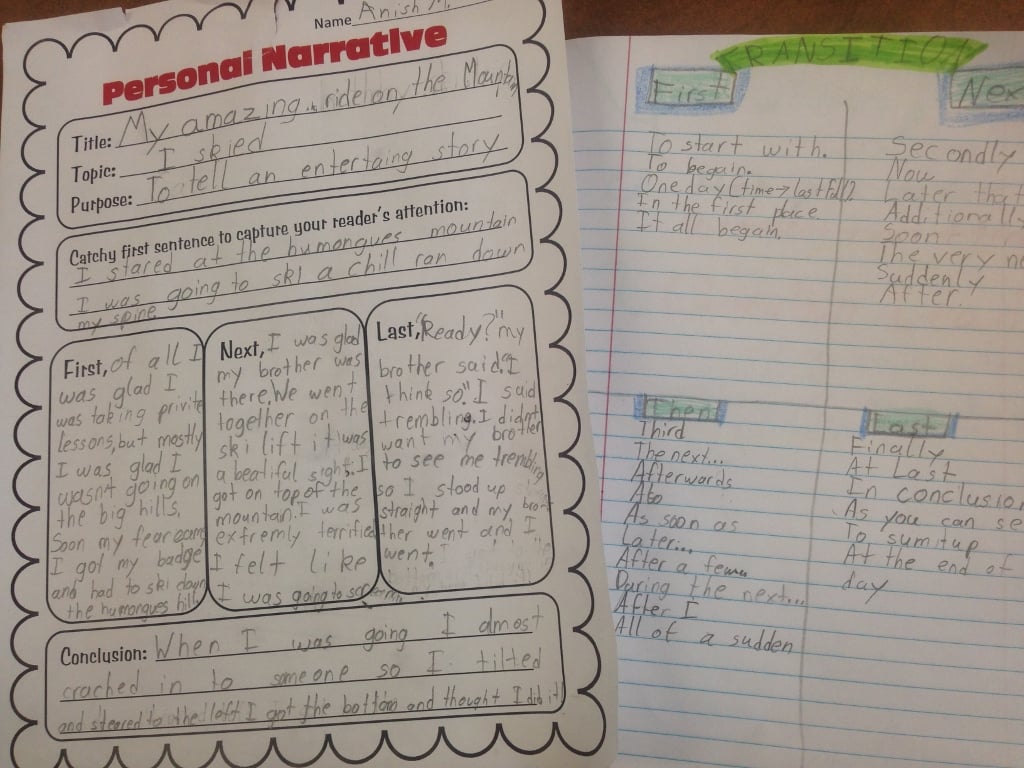 Name Anish M.
Personal Narrative
Title: My amazing ride on the
Topic: I skied
Purpose: To tell an entertaing story
Catchy first sentence to capture your reader's attention:
I stared at the humongues mountain
I was going to ski a chill ran down
my spine
First, of all I
was glad I
was taking privite
lessons, but mostly
I was glad I
wasn't going on
the big hills.
Soon my fear came
I got my badge
and had to ski down
the humongues hill
Next, I was glad
my brother was
there. We went
together on the
ski lift it was
a beatiful sight. I
got on top of the
mountain. I was
extremly terrified
I felt like
I was going to
Last, "Ready?" my
brother said. "I
think so." I said
trembling. I didn't
want my brother
to see me trembling
so I stood up
straight and my brot
ther went and I
went.
Conclusion: When I was going I almost
crached in to someone so I tilted
and steared to the left I got the bottom and thought I did it!
TRANSITION
First
To start with.
To begain.
One day (time→last fall).
In the first place
It all began.
Nex
Secondly
Now
Later that
Additionally
Soon
The very ne
Suddenly
After.
Then
Third
The next...
Afterwards
Also
As soon as
Later...
After a few
During the next...
After I
All of a sudden
Last
Finally
At Last
In conclusion
As you can se
To sum it up
At the end of
day